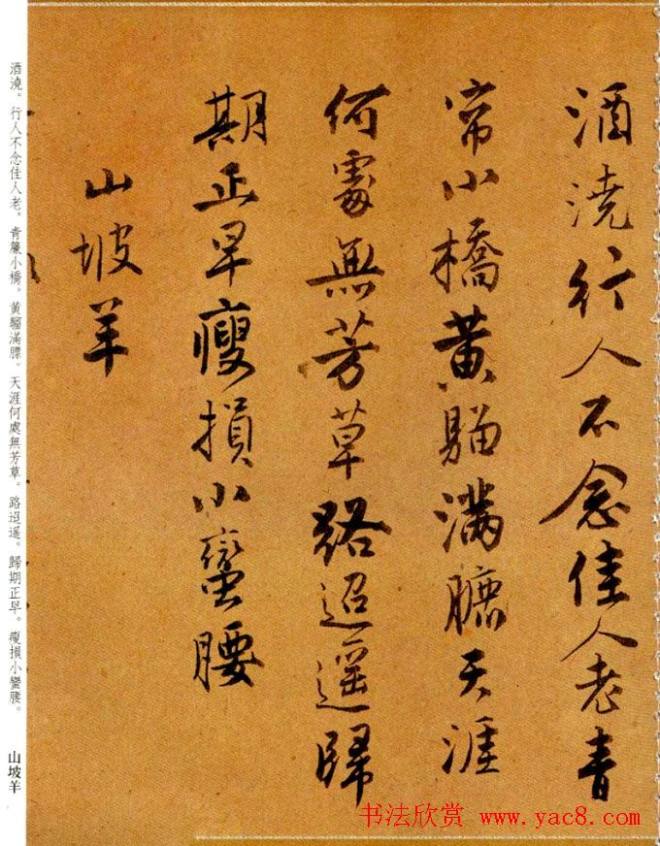 酒澆行人不念佳人老青
帘小橋黃騮滿臕天涯
何處無芳草路迢遥歸
期正早瘦損小蠻腰
山坡羊
酒澆。行人不念佳人老。青簾小橋。黃騮滿膘。天涯何處無芳草。路迢遥。歸期正早。瘦損小蠻腰。 山坡羊
书法欣赏 www.yac8.com